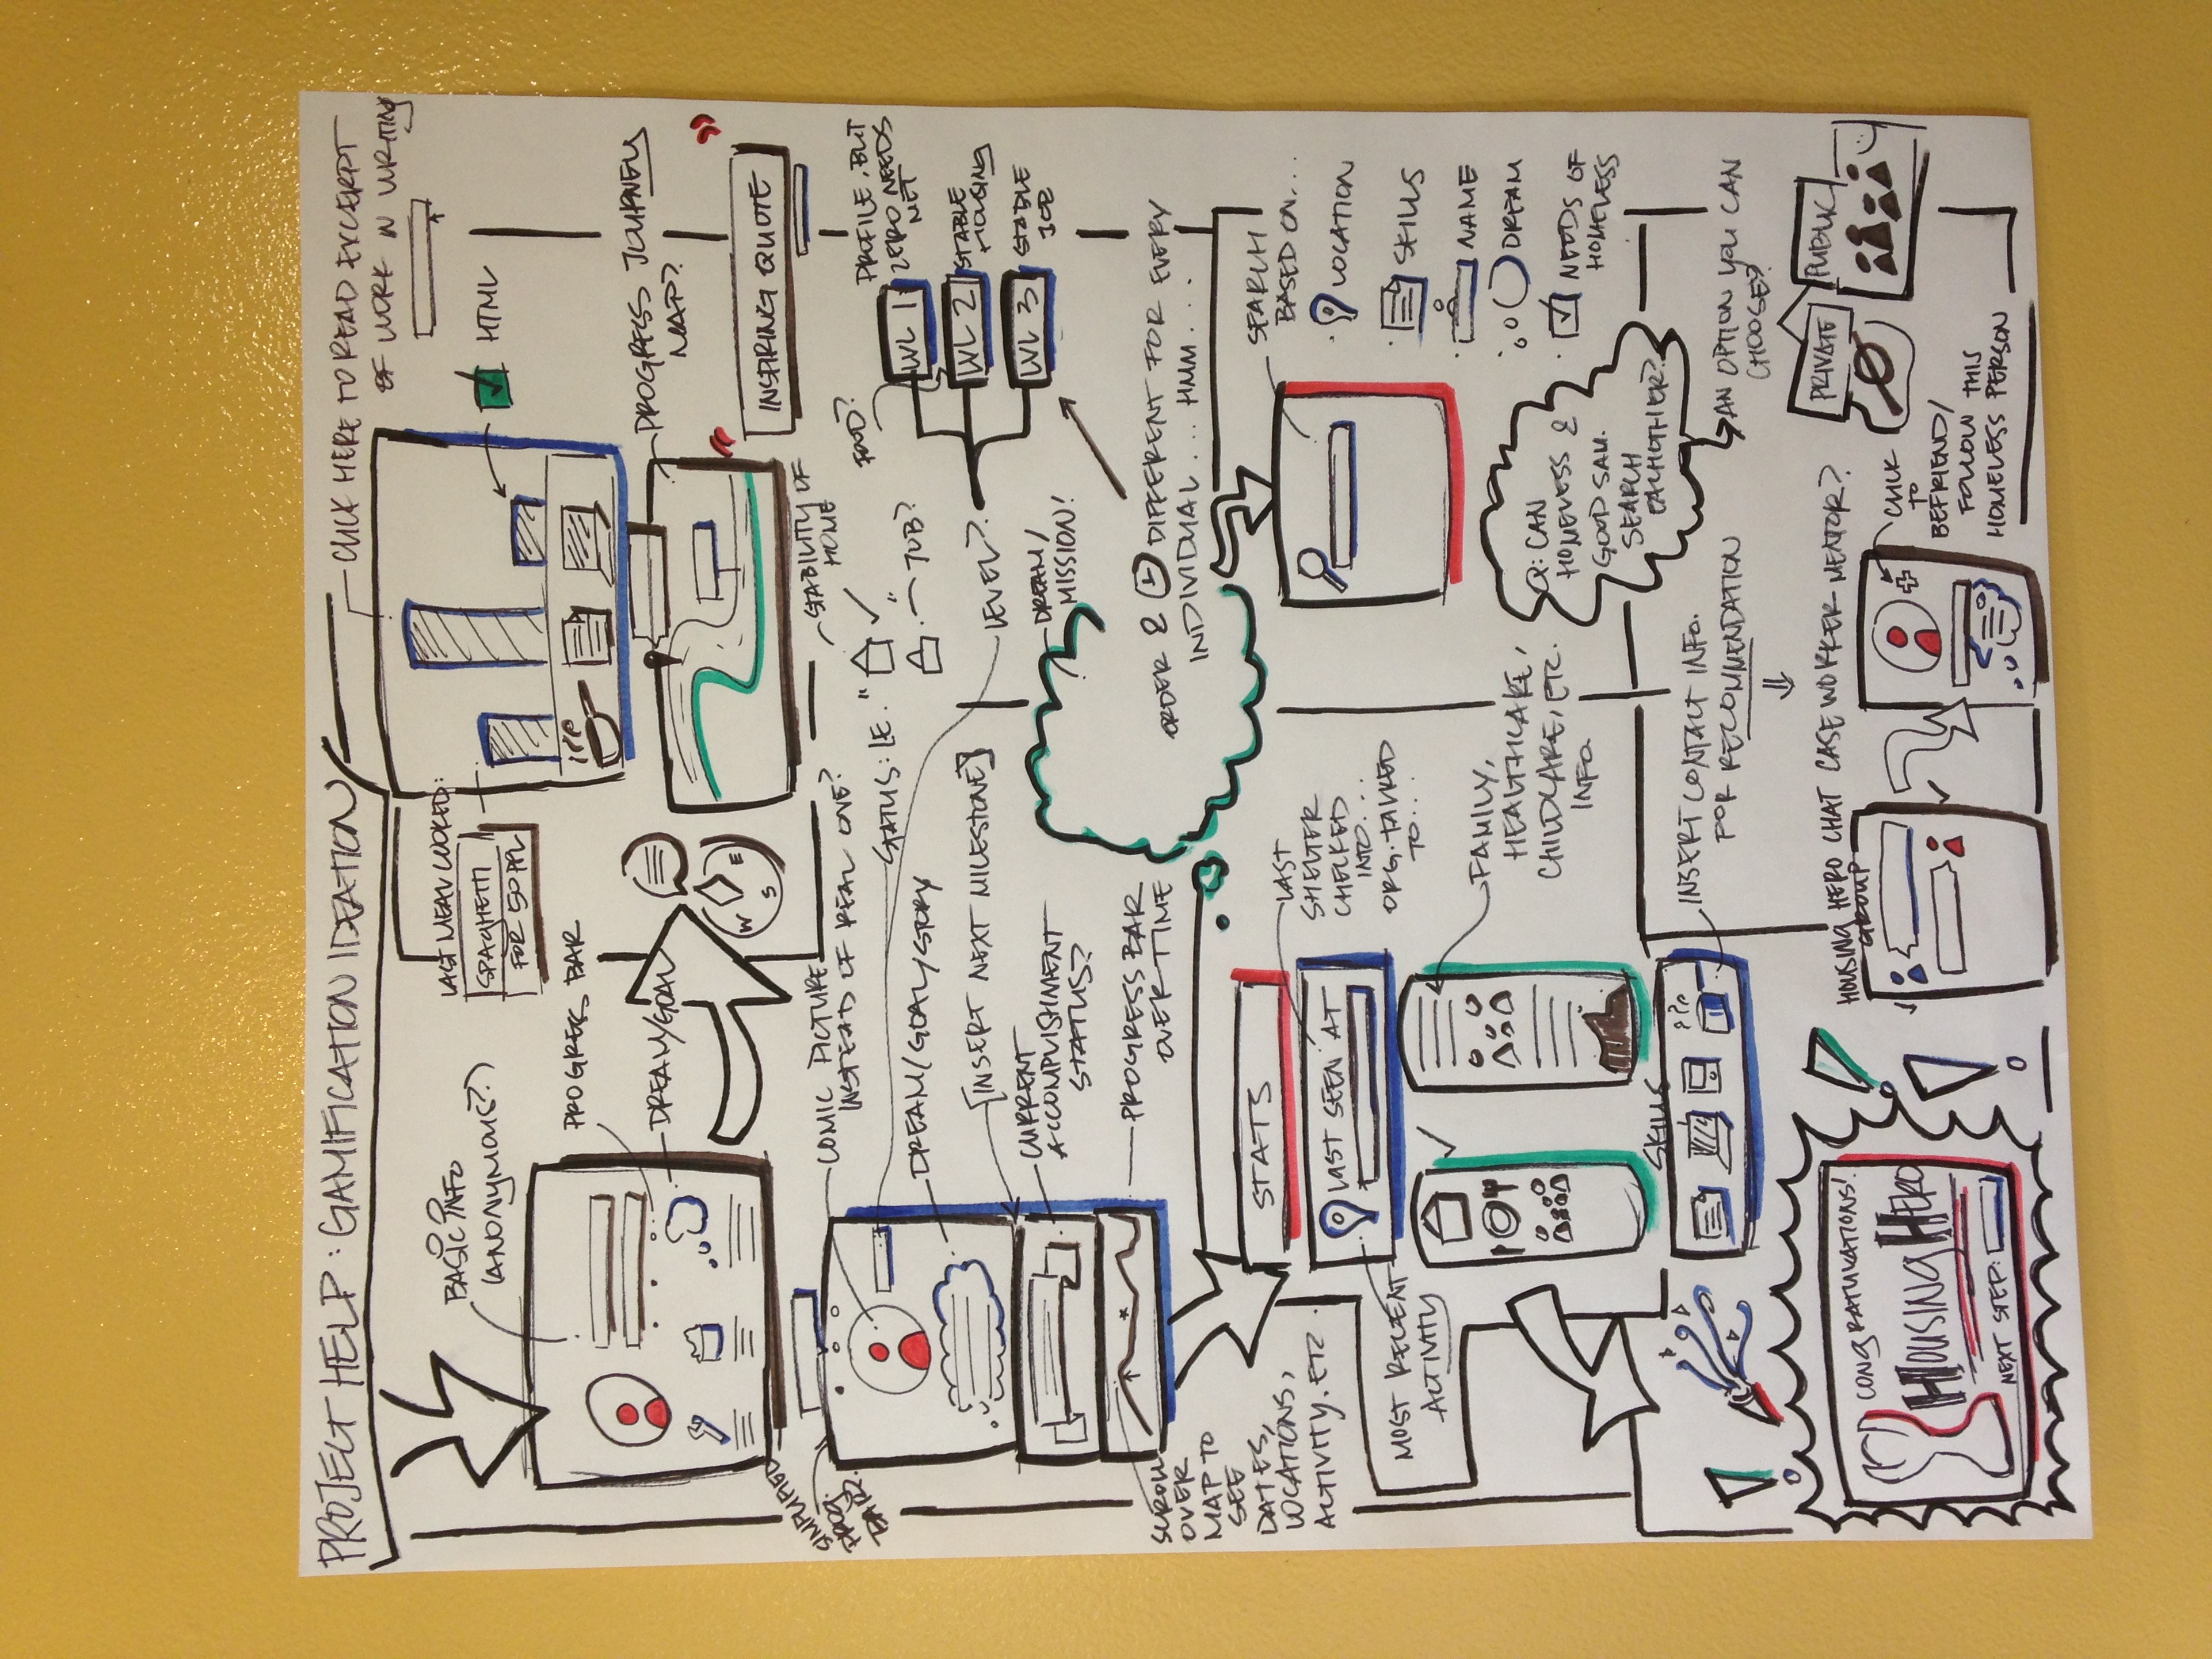 PROJECT HELP: GAMIFICATION IDEATION
CLICK HERE TO READ EXCERPT
OF WORK IN WRITING
BASIC INFO
(ANONYMOUS?)
LAST MEAL COOKED:
SPAGHETTI
FOR 50 PPL
HTML
PROGRESS BAR
DREAM/GOAL
W
S
E
PROGRESS JOURNEY
MAP?
" INSPIRING QUOTE "
SIMPLIFIED
PROG.
BAR?
COMIC PICTURE
INSTEAD OF REAL ONE?
STABILITY OF
HOME
STATUS: I.E. "
" JOB?
FOOD?
PROFILE, BUT
ZERO NEEDS
MET
LVL 1
LVL 2
STABLE
HOUSING
LVL 3
STABLE
JOB
DREAM/GOAL/STORY
LEVEL?
[INSERT NEXT MILESTONE]
DREAM/
MISSION!
CURRENT
ACCOMPLISHMENT
STATUS?
PROGRESS BAR
OVER TIME
ORDER & DIFFERENT FOR EVERY
INDIVIDUAL... HMM...
SCROLL
OVER
MAP TO
SEE
DATES,
LOCATIONS,
ACTIVITY. ETC.
STATS
LAST SEEN AT
LAST
SHELTER
CHECKED
INTO...
ORG. TALKED
TO...
MOST RECENT
ACTIVITY
FAMILY,
HEALTHCARE,
CHILDCARE, ETC.
INFO
SEARCH
BASED ON...
LOCATION
SKILLS
NAME
DREAM
NEEDS OF
HOMELESS
Q: CAN
HOMELESS &
GOOD SAM.
SEARCH
EACHOTHER?
SKILLS
INSERT CONTACT INFO.
FOR RECOMMENDATION
AN OPTION YOU CAN
CHOOSE?
PRIVATE
PUBLIC
CONGRATULATIONS!
HOUSING HERO
NEXT STEP:
HOUSING HERO CHAT
GROUP
CASE WORKER MENTOR?
CLICK
TO
BEFRIEND/
FOLLOW THIS
HOMELESS PERSON